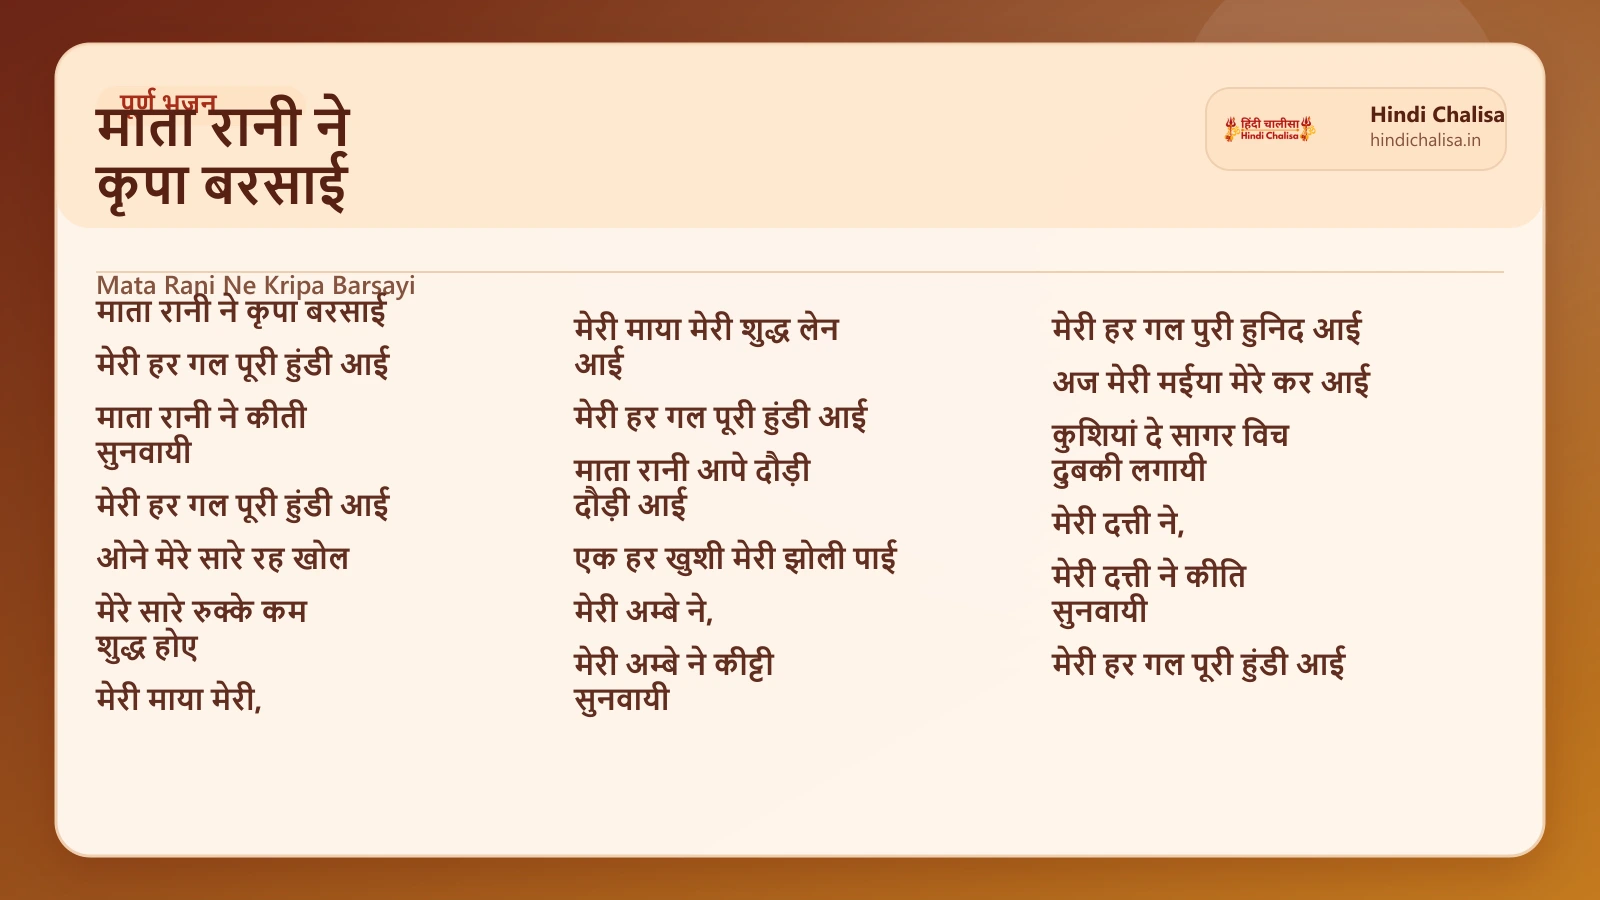 पूर्ण भजन
माता रानी ने
कृपा बरसाई
हिंदी चालीसा
Hindi Chalisa
Hindi Chalisa
hindichalisa.in
Mata Rani Ne Kripa Barsayi
माता रानी ने कृपा बरसाई
मेरी हर गल पूरी हुंडी आई
माता रानी ने कीती
सुनवायी
मेरी हर गल पूरी हुंडी आई
ओने मेरे सारे रह खोल
मेरे सारे रुक्के कम
शुद्ध होए
मेरी माया मेरी,
मेरी माया मेरी शुद्ध लेन
आई
मेरी हर गल पूरी हुंडी आई
माता रानी आपे दौड़ी
दौड़ी आई
एक हर खुशी मेरी झोली पाई
मेरी अम्बे ने,
मेरी अम्बे ने कीट्टी
सुनवायी
मेरी हर गल पुरी हुनिद आई
अज मेरी मईया मेरे कर आई
कुशियां दे सागर विच
दुबकी लगायी
मेरी दत्ती ने,
मेरी दत्ती ने कीति
सुनवायी
मेरी हर गल पूरी हुंडी आई